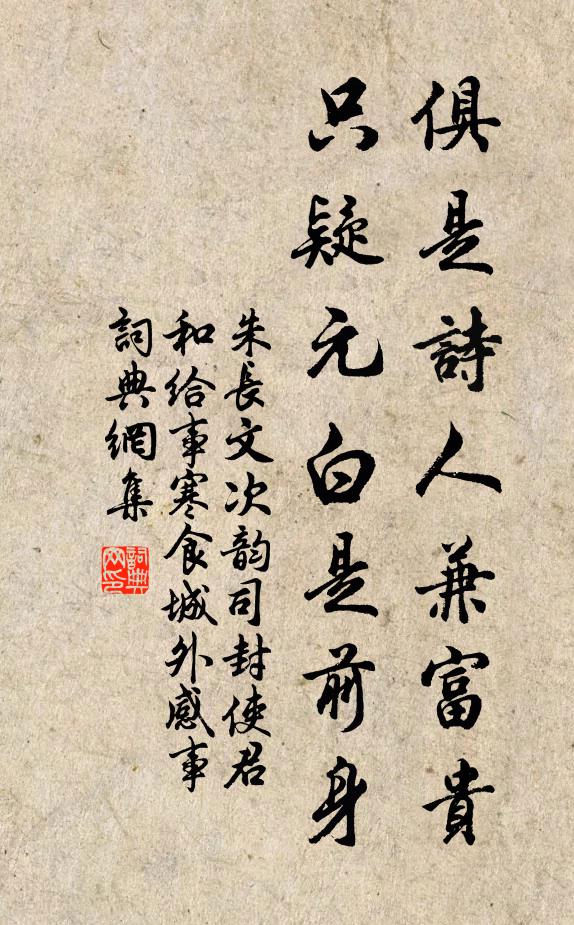 俱是詩人兼富貴
只疑元白是前身
朱長文次韵司封使君
和給事寒食城外感事
詞典網集
詞典
网印